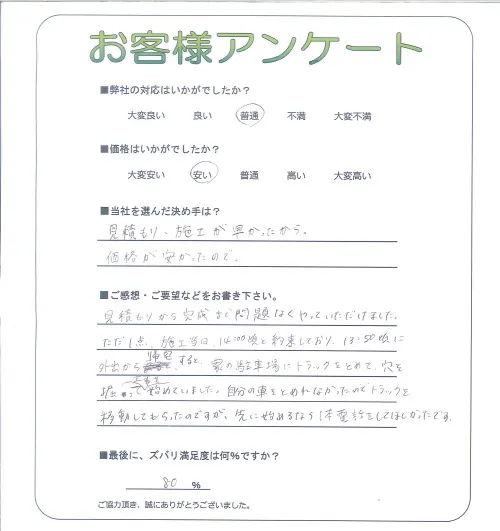 お客様アンケート
■弊社の対応はいかがでしたか？
大変良い 良い 普通 不満 大変不満
■価格はいかがでしたか？
大変安い 安い 普通 高い 大変高い
■当社を選んだ決め手は？
見積もり、施工が早かったから。
価格が安かったので。
■ご感想・ご要望などをお書き下さい。
見積もりから完成まで問題なくやっていただけました。
ただ1点、施工当日、14:00頃と約束しており、13:50頃に
外出から帰宅すると、家の駐車場にトラックをとめて、穴を
掘って 始めていました。自分の車をとめれなかったのでトラックを
移動してもらったのですが、先に始めるなら一本電話をしてほしかったです。
■最後に、ズバリ満足度は何%ですか？
80 %
ご協力頂き、誠にありがとうございました。